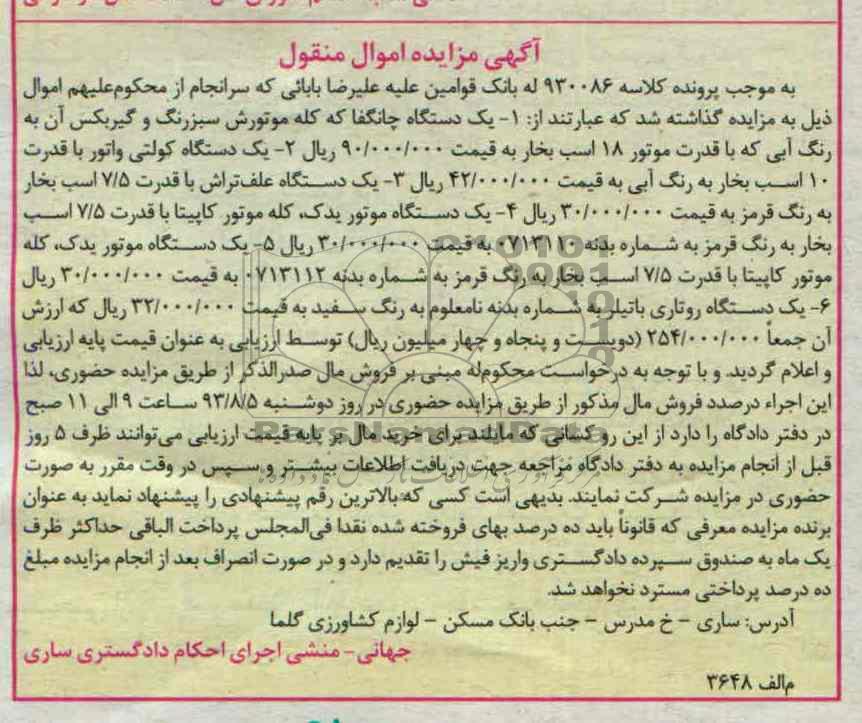 آگهی مزایده اموال منقول
به موجب پرونده کلاسه ۹۳۰۰۸۶ له بانک قوامین علیه علیرضا بابائی که سرانجام از محکوم‌علیهم اموال
ذیل به مزایده گذاشته شد که عبارتند از: ۱- یک دستگاه چانگفا که کله موتورش سبزرنگ و گیربکس آن به
رنگ آبی که با قدرت موتور ۱۸ اسب بخار به قیمت ۹۰/۰۰۰/۰۰۰ ریال ۲- یک دستگاه کولتی واتور با قدرت
۱۰ اسب بخار به رنگ آبی به قیمت ۴۲/۰۰۰/۰۰۰ ریال ۳- یک دستگاه علف‌تراش با قدرت ۷/۵ اسب بخار
به رنگ قرمز به قیمت ۳۰/۰۰۰/۰۰۰ ریال ۴- یک دستگاه موتور یدک، کله موتور کاپیتا با قدرت ۷/۵ اسب
بخار به رنگ قرمز به شماره بدنه ۰۷۱۳۱۱۰ به قیمت ۳۰/۰۰۰/۰۰۰ ریال ۵- یک دستگاه موتور یدک، کله
موتور کاپیتا با قدرت ۷/۵ اسب بخار به رنگ قرمز به شماره بدنه ۰۷۱۳۱۱۲ به قیمت ۳۰/۰۰۰/۰۰۰ ریال
۶- یک دستگاه روتاری باتیلر به شماره بدنه نامعلوم به رنگ سفید به قیمت ۳۲/۰۰۰/۰۰۰ ریال که ارزش
آن جمعاً ۲۵۴/۰۰۰/۰۰۰ (دویست و پنجاه و چهار میلیون ریال) توسط ارزیابی به عنوان قیمت پایه ارزیابی
و اعلام گردید. و با توجه به درخواست محکوم‌له مبنی بر فروش مال صدرالذکر از طریق مزایده حضوری، لذا
این اجراء درصدد فروش مال مذکور از طریق مزایده حضوری در روز دوشنبه ۹۳/۸/۵ ساعت ۹ الی ۱۱ صبح
در دفتر دادگاه را دارد از این رو کسانی که مایلند برای خرید مال بر پایه قیمت ارزیابی می‌توانند ظرف ۵ روز
قبل از انجام مزایده به دفتر دادگاه مراجعه جهت دریافت اطلاعات بیشتر و سپس در وقت مقرر به صورت
حضوری در مزایده شرکت نمایند. بدیهی است کسی که بالاترین رقم پیشنهادی را پیشنهاد نماید به عنوان
برنده مزایده معرفی که قانوناً باید ده درصد بهای فروخته شده نقدا فی‌المجلس پرداخت الباقی حداکثر ظرف
یک ماه به صندوق سپرده دادگستری واریز فیش را تقدیم دارد و در صورت انصراف بعد از انجام مزایده مبلغ
ده درصد پرداختی مسترد نخواهد شد.
آدرس: ساری - خ مدرس - جنب بانک مسکن - لوازم کشاورزی گلما
جهانی- منشی اجرای احکام دادگستری ساری
م‌الف ۳۶۴۸